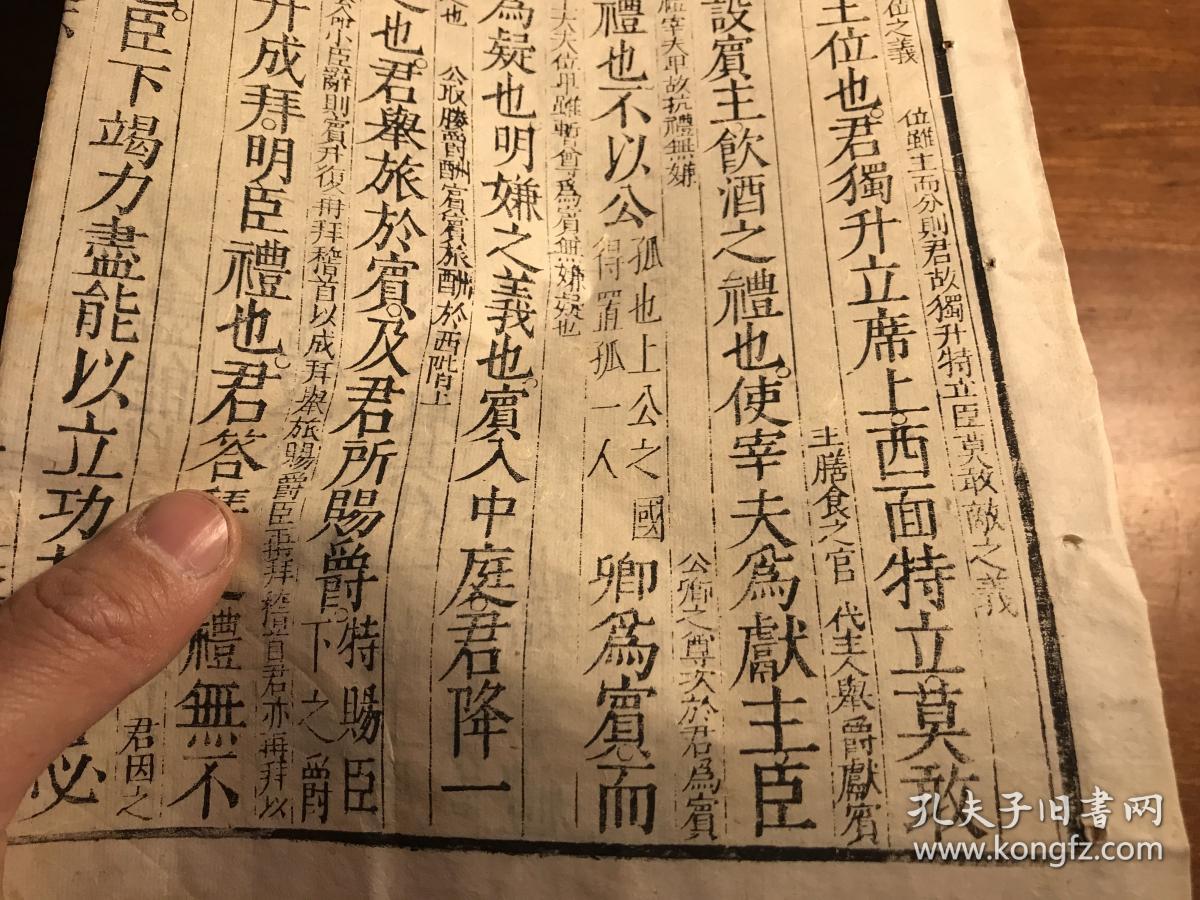 位雖主而分則君故獨升特立臣莫敢敵之義
主位也君獨升立席上西面特立莫敢
主膳食之官 代主人舉爵獻賓
設賓主飲酒之禮也使宰夫為獻主臣
宰夫卑故抗禮無嫌
公卿之尊次於君為賓
禮也不以公孤也上公之國得置孤一人卿為賓而
大夫位卑雖暫尊為賓無嫌疑也
為疑也明嫌之義也賓入中庭君降一
公取媵爵酬賓賓旅酬於西階上
也君舉旅於賓及君所賜爵特賜臣下之爵
小臣辭則賓升復再拜稽首以成拜舉旅賜爵臣再拜稽首君亦再拜以
升成拜明臣禮也君答拜禮無不
君因之
臣下竭力盡能以立功
必
孔夫子旧书网
www.kongfz.com